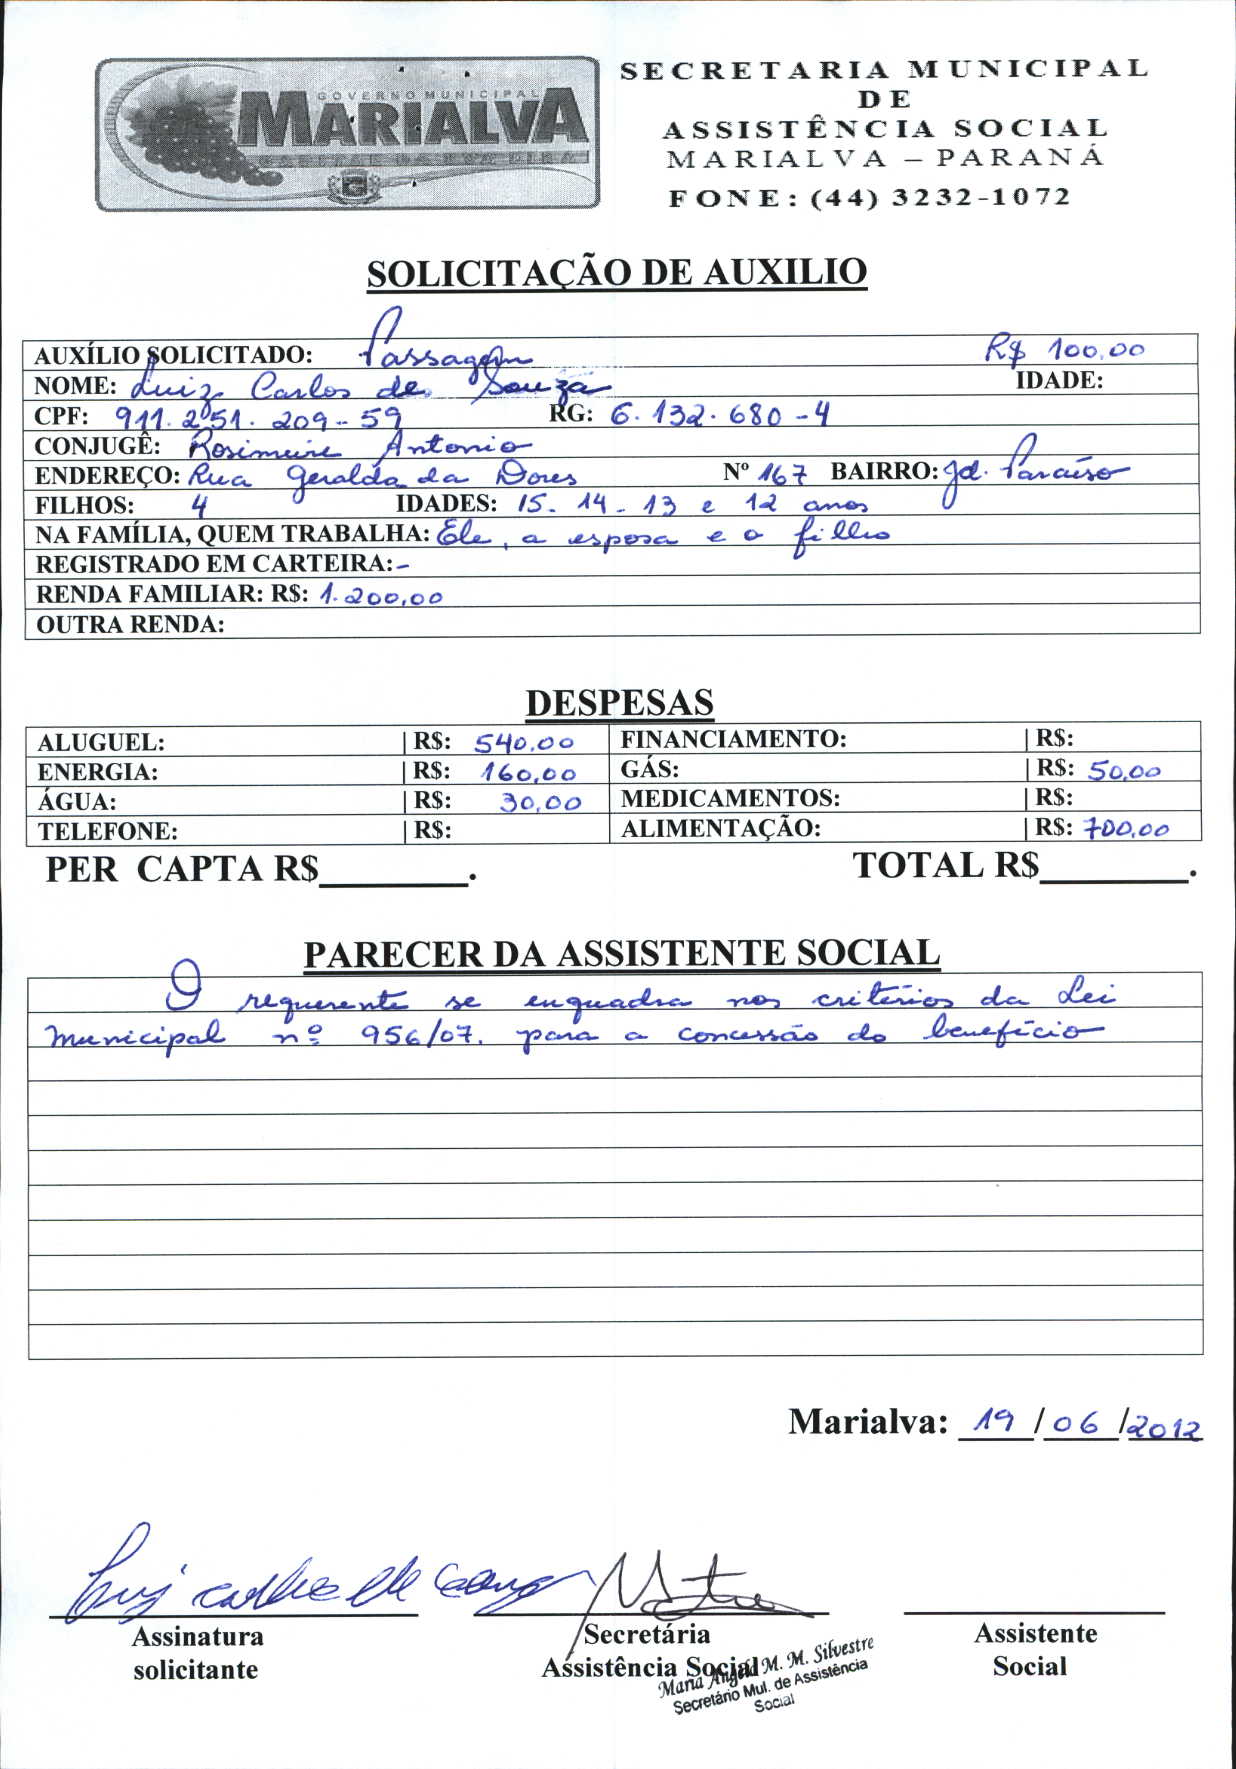 GOVERNO MUNICIPAL
MARIALVA
CAPITAL DA UVA FINA
SECRETARIA MUNICIPAL
DE
ASSISTÊNCIA SOCIAL
MARIALVA – PARANÁ
FONE: (44) 3232-1072
SOLICITAÇÃO DE AUXILIO
AUXÍLIO SOLICITADO: Passagem R$ 100,00
NOME: Luiz Carlos de Souza IDADE:
CPF: 911.251.209-59 RG: 6.132.680-4
CONJUGÊ: Rosimeire Antonio
ENDEREÇO: Rua Geralda da Dores Nº 167 BAIRRO: Jd. Paraíso
FILHOS: 4 IDADES: 15 - 14 - 13 e 12 anos
NA FAMÍLIA, QUEM TRABALHA: Ele, a esposa e o filho
REGISTRADO EM CARTEIRA: -
RENDA FAMILIAR: R$: 1.200,00
OUTRA RENDA:
DESPESAS
ALUGUEL: | R$: 540,00 FINANCIAMENTO: | R$:
ENERGIA: | R$: 160,00 GÁS: | R$: 50,00
ÁGUA: | R$: 30,00 MEDICAMENTOS: | R$:
TELEFONE: | R$: ALIMENTAÇÃO: | R$: 700,00
PER CAPTA R$________. TOTAL R$________.
PARECER DA ASSISTENTE SOCIAL
O requerente se enquadra nos critérios da Lei
Municipal nº 956/07. para a concessão do benefício
Marialva: 19 / 06 / 2012
Luiz Carlos de Souza
Assinatura Secretária Assistente
solicitante Assistência Social Social
Maria Angela M. M. Silvestre
Secretário Mul. de Assistência
Social